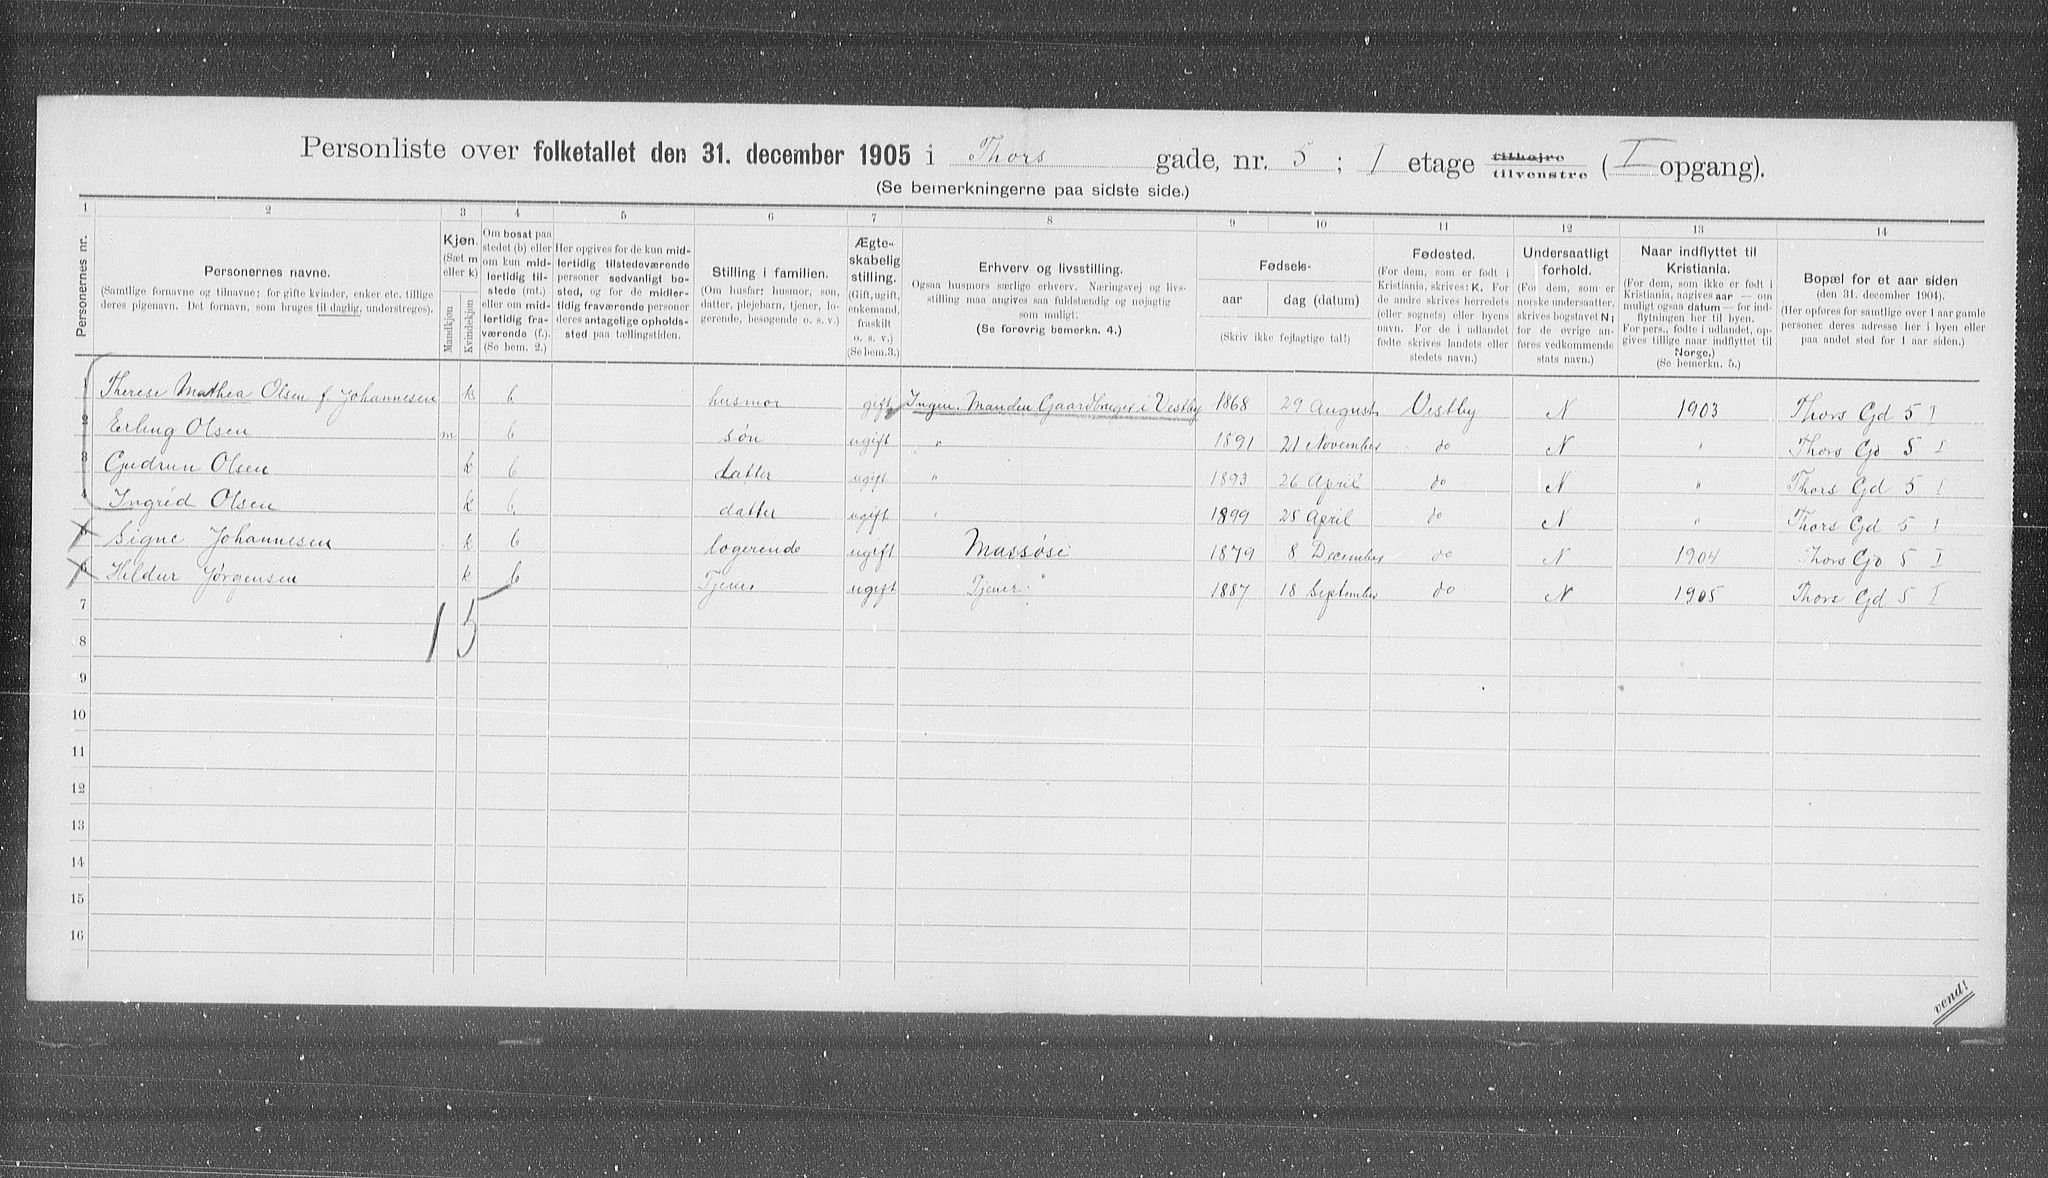 Personliste over folketallet den 31. december 1905 i Thors gade, nr. 5 ; I etage tilhøjre tilvenstre ( I opgang).
(Se bemerkningerne paa sidste side.)
1 2 3 4 5 6 7 8 9 10 11 12 13 14
Personernes nr.
Personernes navne.
(Samtlige fornavne og tilnavne; for gifte kvinder, enker etc. tillige
deres pigenavn. Det fornavn, som bruges til daglig, understreges).
Kjøn.
(Sæt m
eller k)
Mandkjøn
Kvindekjøn
Om bosat paa
stedet (b) eller
om kun mid-
lertidig til-
stede (mt.)
eller om mid-
lertidig fra-
værende (f.).
(Se bem. 2.)
Her opgives for de kun mid-
lertidig tilstedeværende
personer sedvanligt bo-
sted, og for de midler-
tidig fraværende personer
deres antagelige opholds-
sted paa tællingstiden.
Stilling i familien.
(Om husfar, husmor, søn,
datter, plejebarn, tjener, lo-
gerende, besøgende o. s. v.)
Ægte-
skabelig
stilling.
(Gift, ugift,
enkemand,
fraskilt
o. s. v.)
(Se bem. 3.)
Erhverv og livsstilling.
Ogsaa husmors særlige erhverv. Næringsvej og livs-
stilling maa angives saa fuldstændig og nøjagtig
som muligt.
(Se forøvrig bemerkn. 4.)
Fødsels-
aar
dag (datum)
(Skriv ikke fejlagtige tal!)
Fødested.
(For dem, som er født i
Kristiania, skrives: K. For
de andre skrives herredets
(eller sognets) eller byens
navn. For de i udlandet
fødte skrives landets eller
stedets navn.)
Undersaatligt
forhold.
(For dem, som er
norske undersaatter,
skrives bogstavet N;
for de øvrige an-
føres vedkommende
stats navn.)
Naar indflyttet til
Kristiania.
(For dem, som ikke er født i
Kristiania, angives aar — om
muligt ogsaa datum — for ind-
flytningen her til byen.
For pers., fødte i udlandet, op-
gives tillige naar indflyttet til
Norge.)
(Se bemerkn. 5.)
Bopæl for et aar siden
(den 31. december 1904).
(Her opføres for samtlige over 1 aar gamle
personer deres adresse her i byen eller
paa andet sted for 1 aar siden.)
1 Therese Mathea Olsen f. Johannesen k b husmor gift Ingen. Manden Gaardbruger i Vestby 1868 29 August Vestby N 1903 Thors Gd 5 I
2 Erling Olsen m b søn ugift " 1891 21 November do N " Thors Gd 5 I
3 Gudrun Olsen k b datter ugift " 1893 26 April do N " Thors Gd 5 I
4 Ingrid Olsen k b datter ugift " 1899 25 April do N " Thors Gd 5 I
5 Signe Johannesen k b logerende ugift Massøse 1879 8 December do N 1904 Thors Gd 5 I
6 Hildur Jørgensen k b Tjener ugift Tjener 1887 18 September do N 1905 Thors Gd 5 I
7
1 5
8
9
10
11
12
13
14
15
16
vend!